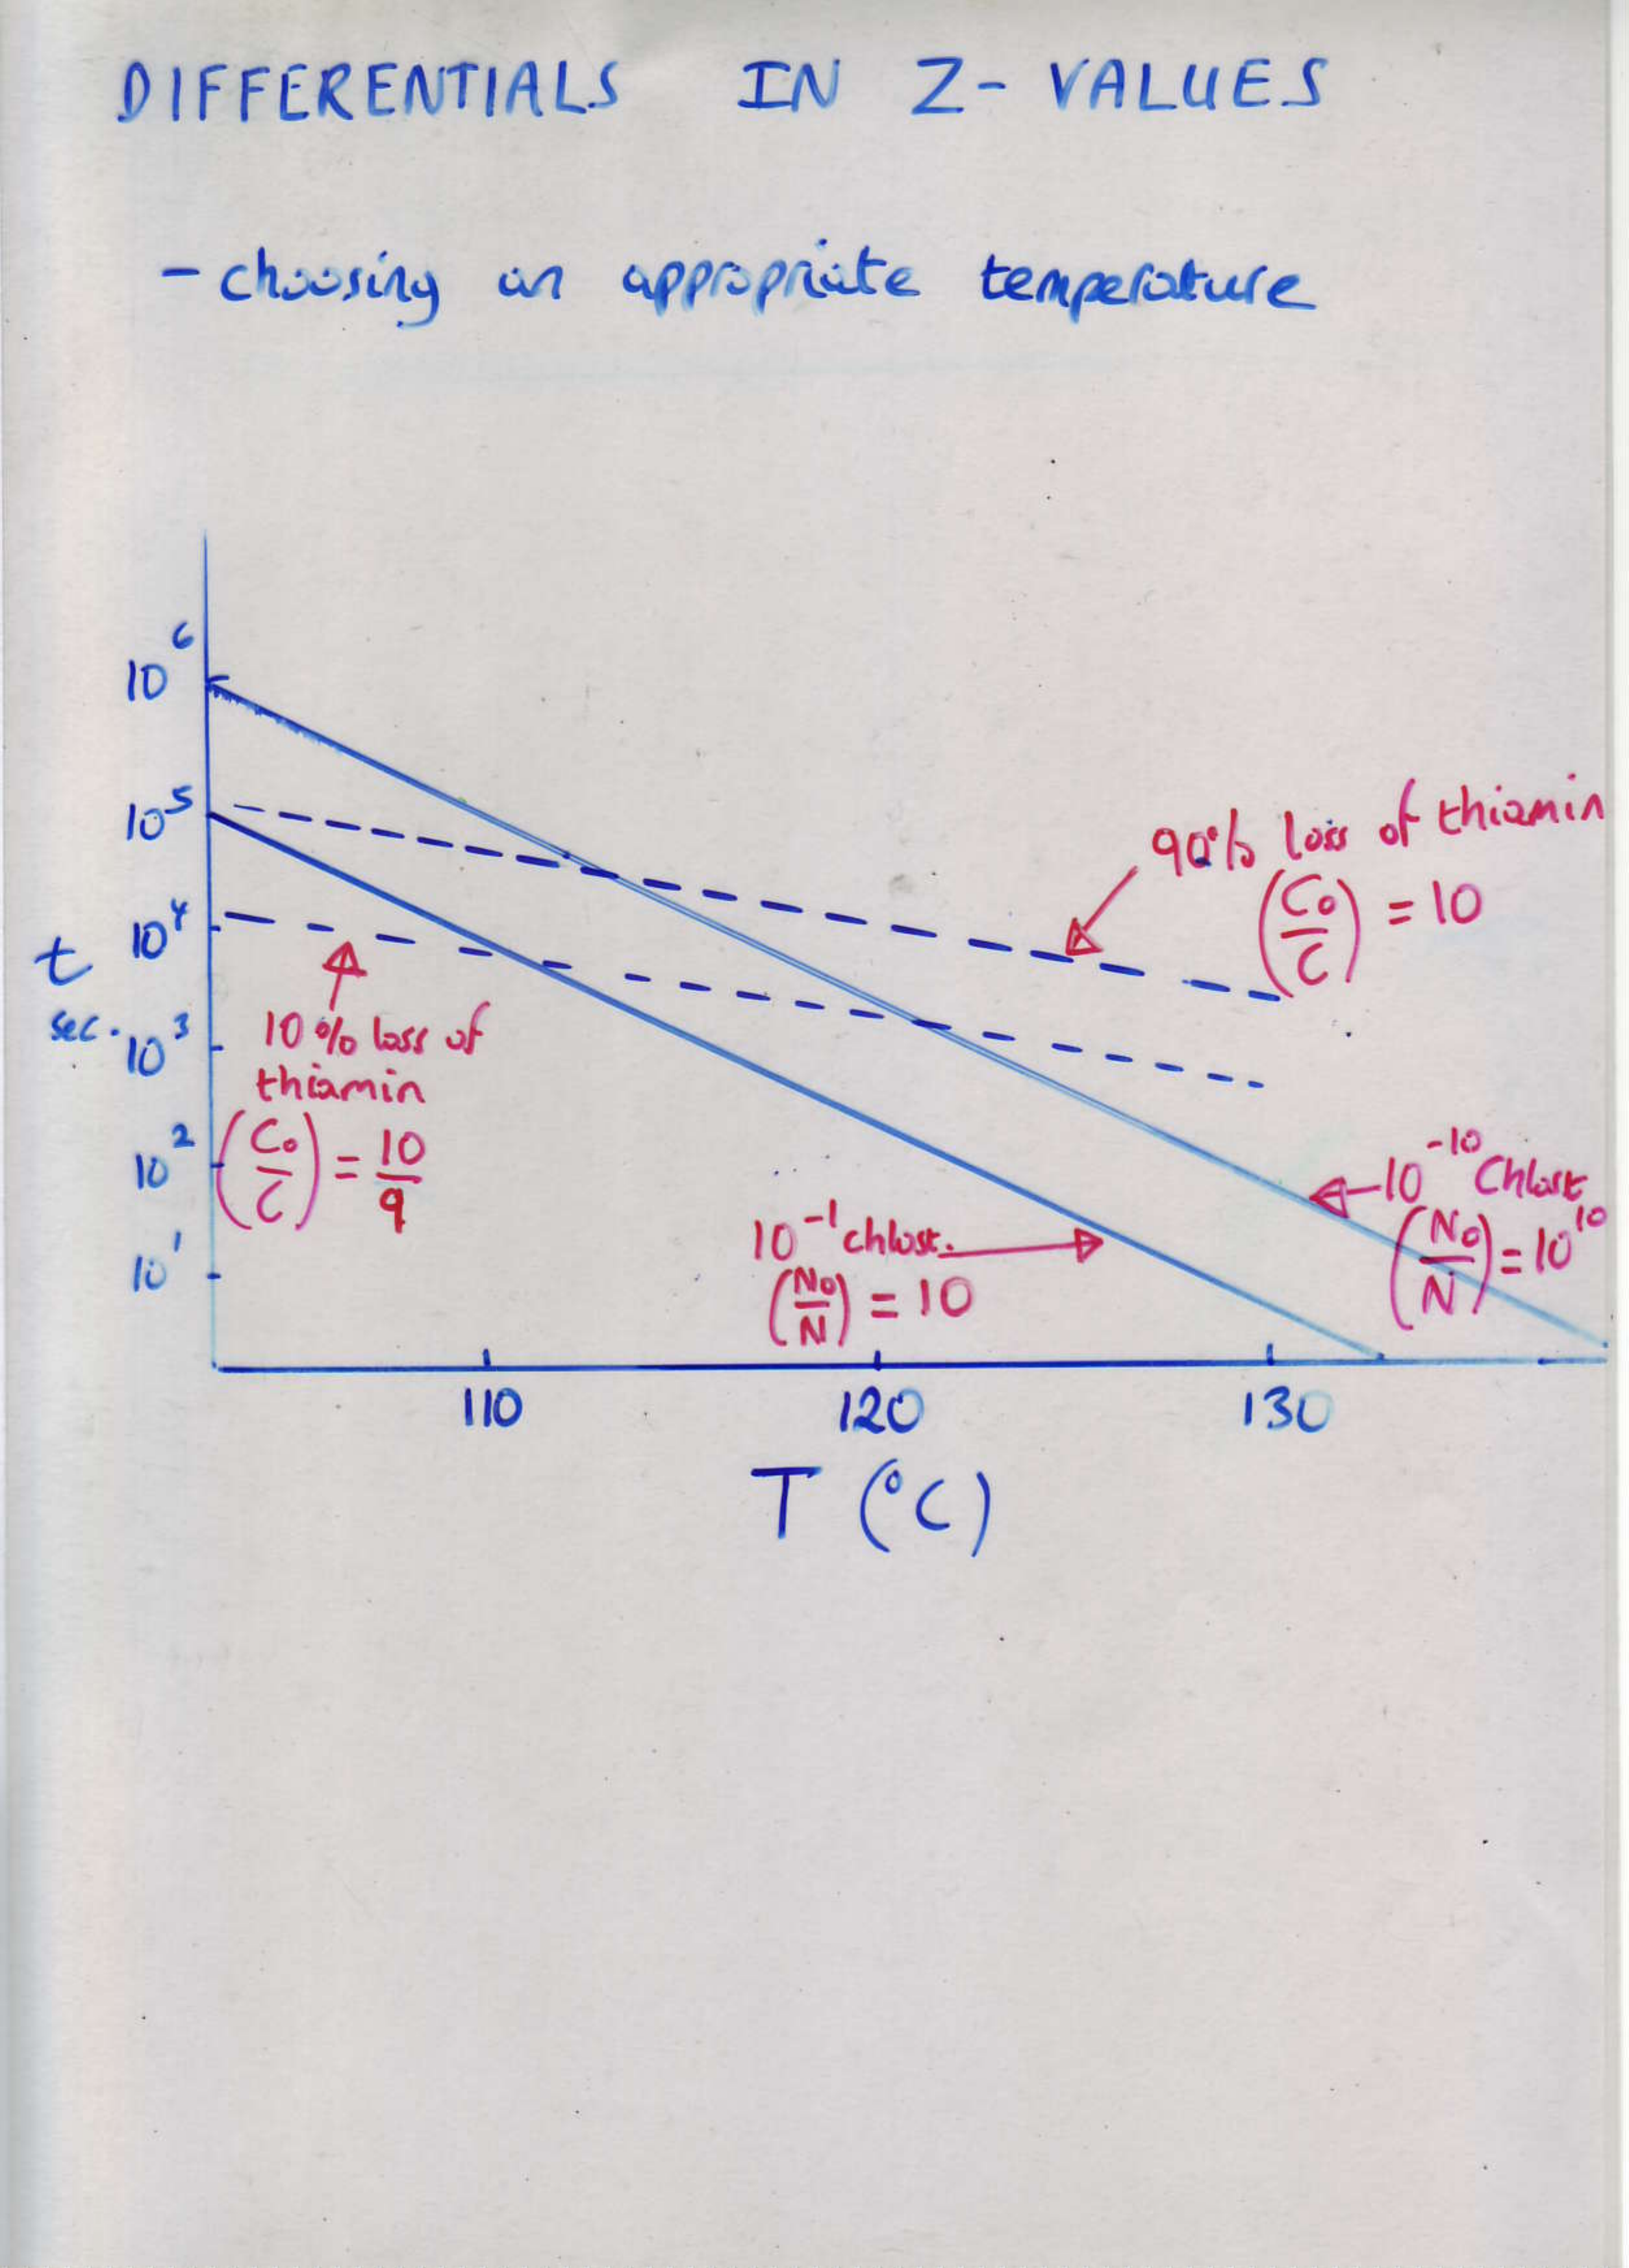 DIFFERENTIALS IN Z- VALUES
- choosing an appropriate temperature
10⁶
10⁵
10⁴
t
sec.
10³
10²
10¹
90% loss of thiamin
(C₀/C) = 10
10% loss of
thiamin
(C₀/C) = 10/9
10⁻¹ chlost.
(N₀/N) = 10
10⁻¹⁰ Chlost.
(N₀/N) = 10¹⁰
110 120 130
T (°C)